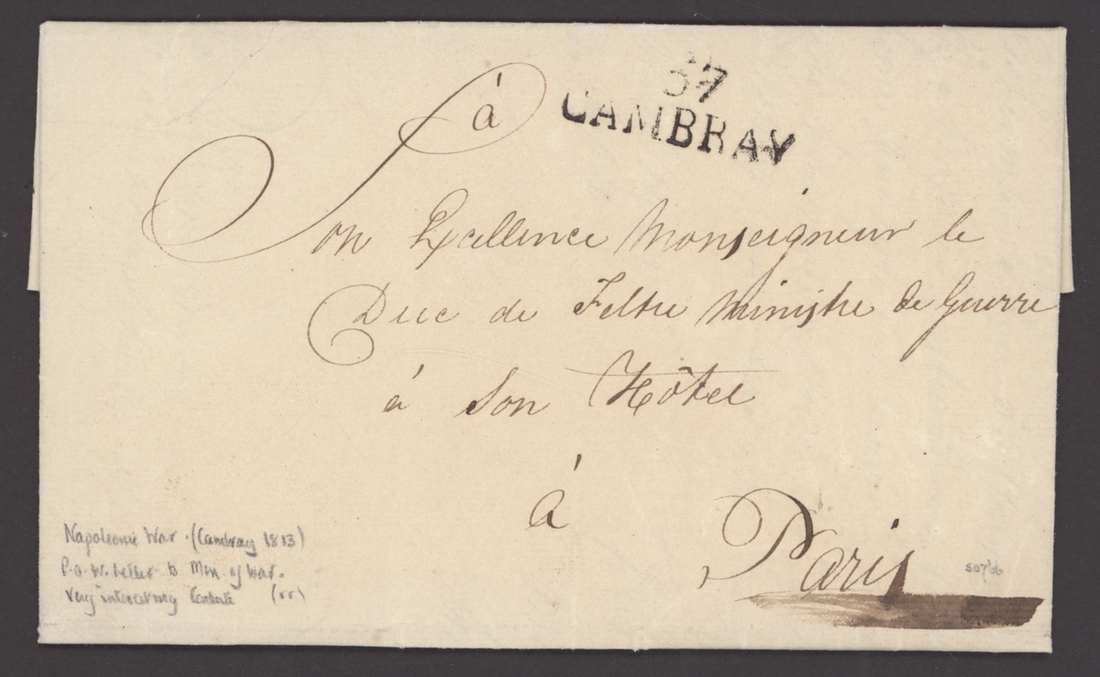 à
57
CAMBRAY
Son Excellence Monseigneur le
Duc de Feltre Ministre de Guerre
à Son Hôtel
à
Paris
Napoleonic War. (Cambray 1813)
P.o.W. Letter to Min. of War.
Very interesting